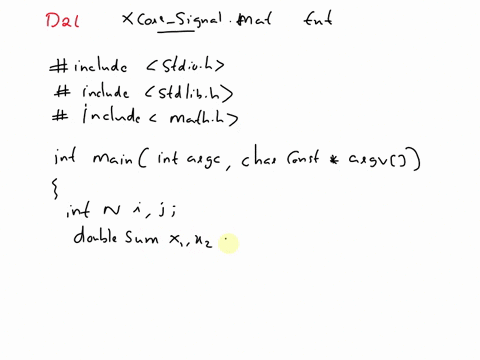 D21 XCore_Signal.mat
#include <stdio.h>
# include <stdlib.h>
# include < math.h>
int main( int argc, char const * argv[])
{
int N i, j;
double sum x1, x2